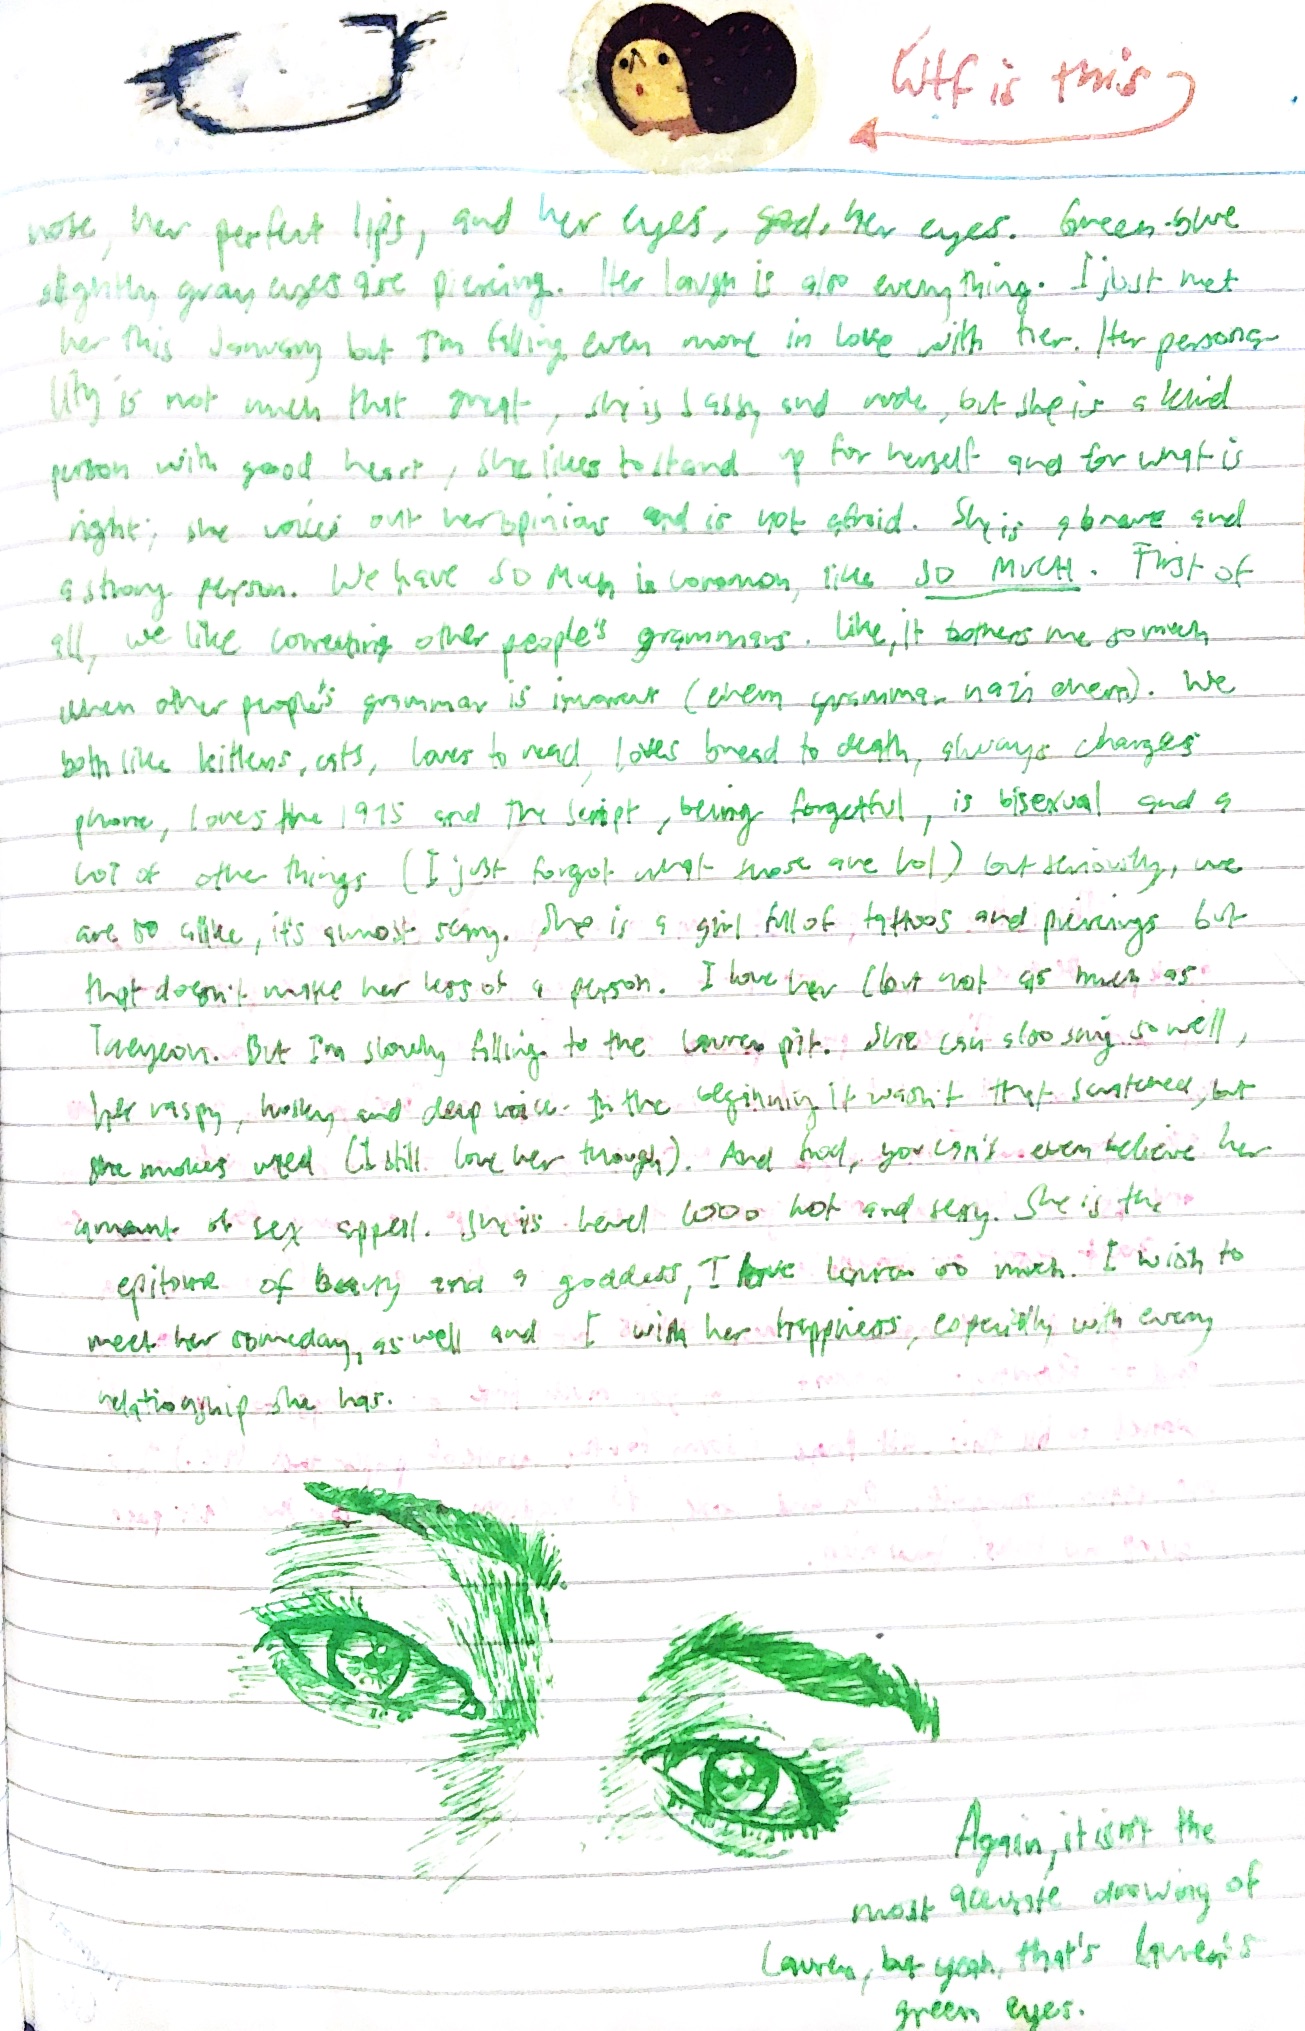 Wtf is this
nose, her perfect lips, and her eyes, god, her eyes. Green-blue
slightly gray eyes are piercing. Her laugh is also everything. I just met
her this January but I'm falling even more in love with her. Her persona-
lity is not much that great, she is sassy and rude, but she is a kind
person with good heart, she likes to stand up for herself and for what is
right; she voices out her opinions and is not afraid. She is a brave and
a strong person. We have SO MUCH in common, like SO MUCH. First of
all, we like correcting other people's grammars. Like, it bothers me so much
when other people's grammar is incorrect (ehem grammar nazi ehem). We
both like kittens, cats, loves to read, loves bread to death, always changes
phone, loves the 1975 and The Script, being forgetful, is bisexual and a
lot of other things (I just forgot what those are lol) but seriously, we
are so alike, it's almost scary. She is a girl full of tattoos and piercings but
that doesn't make her less of a person. I love her (but not as much as
Taeyeon. But I'm slowly falling to the Lauren pit. She can also sing so well,
her raspy, husky and deep voice. In the beginning it wasn't that scratched, but
she smokes weed (I still love her though). And god, you can't even believe her
amount of sex appeal. She is level 1000 hot and sexy. She is the
epitome of beauty and a goddess, I love Lauren so much. I wish to
meet her someday, as well and I wish her happiness, especially with every
relationship she has.
Again, it isn't the
most accurate drawing of
Lauren, but yeah, that's Lauren's
green eyes.